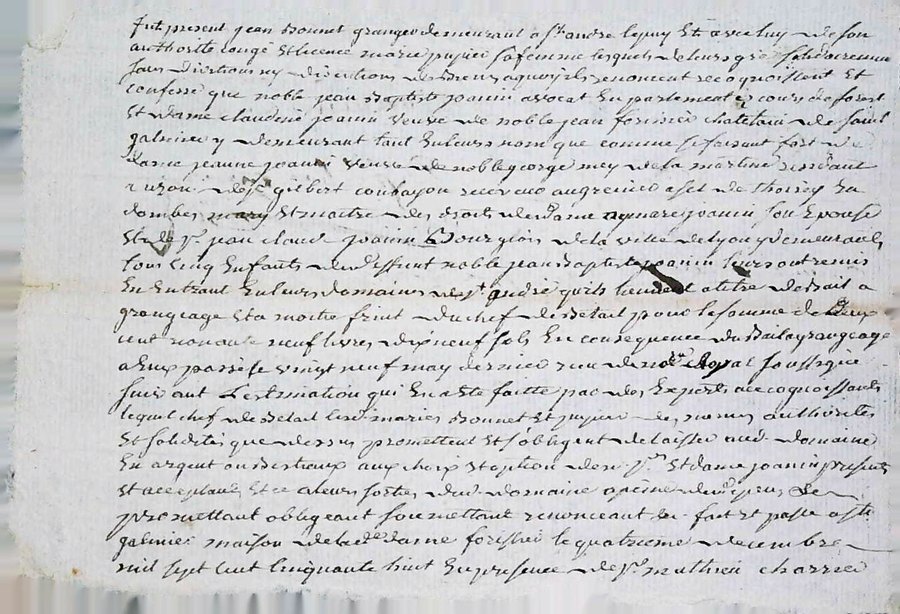 fut present jean Bonnet granger demeurant a st andre le puy Et avec luy de son
authorité congé et licence marie pupier sa femme lesquels de leurs gré solidairement
sans division ny discution de biens a quoy ils renoncent recognoissent et
confesse que noble jean Baptiste joanin avocat En parlement cours de forest
Et dame claudine joanin veuve de noble jean forisier chatelain de saint
galmier y demeurant tant En leurs nom que comme se faisant fort de
dame jeanne joanin veuve de noble george mey de la martine residant
a uzon de sr gilbert couhajon receveur au grenier a sel de thoissey En
dombes mary et maitre des droits de dame aymare joanin son Epouse
Et de sr jean claude joanin Bourgeois de la ville de Lyon y demeurant
tous cinq Enfants de deffunt noble jean Baptiste joanin leurs ont remis
En Entrant En leurs domaines de st andré qu'ils tiendent a titre de Bail a
grangeage Et a moitie fruit du chef de Betail pour la somme de deux
cent nonante neuf livres dix neuf sols En consequence du Bail a grangeage
a Eux passé le vingt neuf may dernier reçu de me soussigné
suivant L'estimation qui En a este faitte par des Experts a ce cognoissants
lequel chef de Betail lesd. mariés Bonnet Et pupier de mesmes authorités
Et solidités que dessus promettent Et s'obligent de laisser aud. domaine
En argent ou Bestiaux aux choix et option desd. srs Et dame joanin presents
Et acceptants Et ce a leurs sorties dud. domaine a peine de
promettant obligeant soumettant renonceant &c. fait et passé a st
galmier maison de lade dame forisier le quatrieme decembre
mil sept cent cinquante huit En presence de sr mathieu charrier